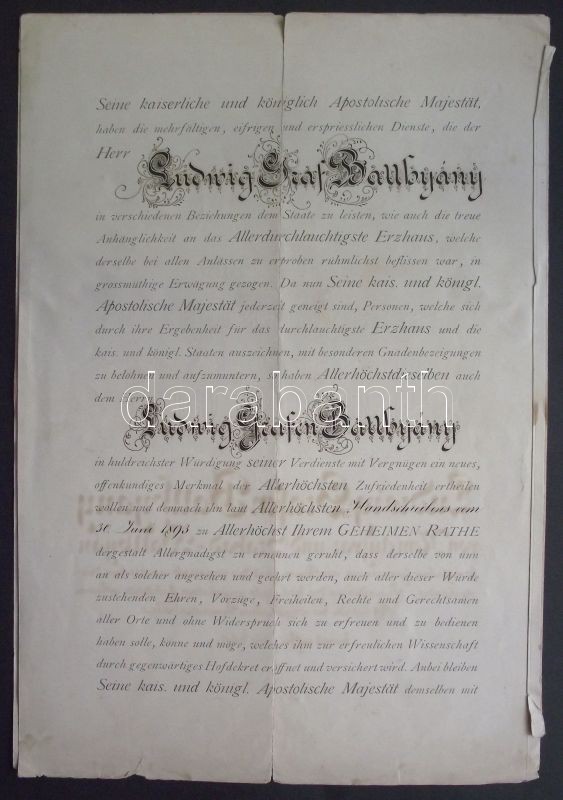 Seine kaiserliche und königlich Apostolische Majestät,
haben die mehrfältigen, eifrigen und erspriesslichen Dienste, die der
Herr
Ludwig Graf Batthyány
in verschiedenen Beziehungen dem Staate zu leisten, wie auch die treue
Anhänglichkeit an das Allerdurchlauchtigste Erzhaus, welche
derselbe bei allen Anlässen zu erproben rühmlichst beflissen war, in
grossmüthige Erwägung gezogen. Da nun Seine kais. und königl.
Apostolische Majestät jederzeit geneigt sind, Personen, welche sich
durch ihre Ergebenheit für das durchlauchtigste Erzhaus und die
kais. und königl. Staaten auszeichnen, mit besonderen Gnadenbezeigungen
zu belohnen und aufzumuntern, so haben Allerhöchstdieselben auch
dem Herrn
darabanth
Ludwig Grafen Batthyány
in huldreichster Würdigung seiner Verdienste mit Vergnügen ein neues,
offenkundiges Merkmal der Allerhöchsten Zufriedenheit ertheilen
wollen und demnach ihn laut Allerhöchsten Handschreibens vom
30 Juni 1893 zu Allerhöchst Ihrem GEHEIMEN RATHE
dergestalt Allergnädigst zu ernennen geruht, dass derselbe von nun
an als solcher angesehen und geehrt werden, auch aller dieser Würde
zustehenden Ehren, Vorzüge, Freiheiten, Rechte und Gerechtsamen
aller Orte und ohne Widerspruch sich zu erfreuen und zu bedienen
haben solle, könne und möge, welches ihm zur erfreulichen Wissenschaft
durch gegenwärtiges Hofdekret eröffnet und versichert wird. Anbei bleiben
Seine kais. und königl. Apostolische Majestät demselben mit